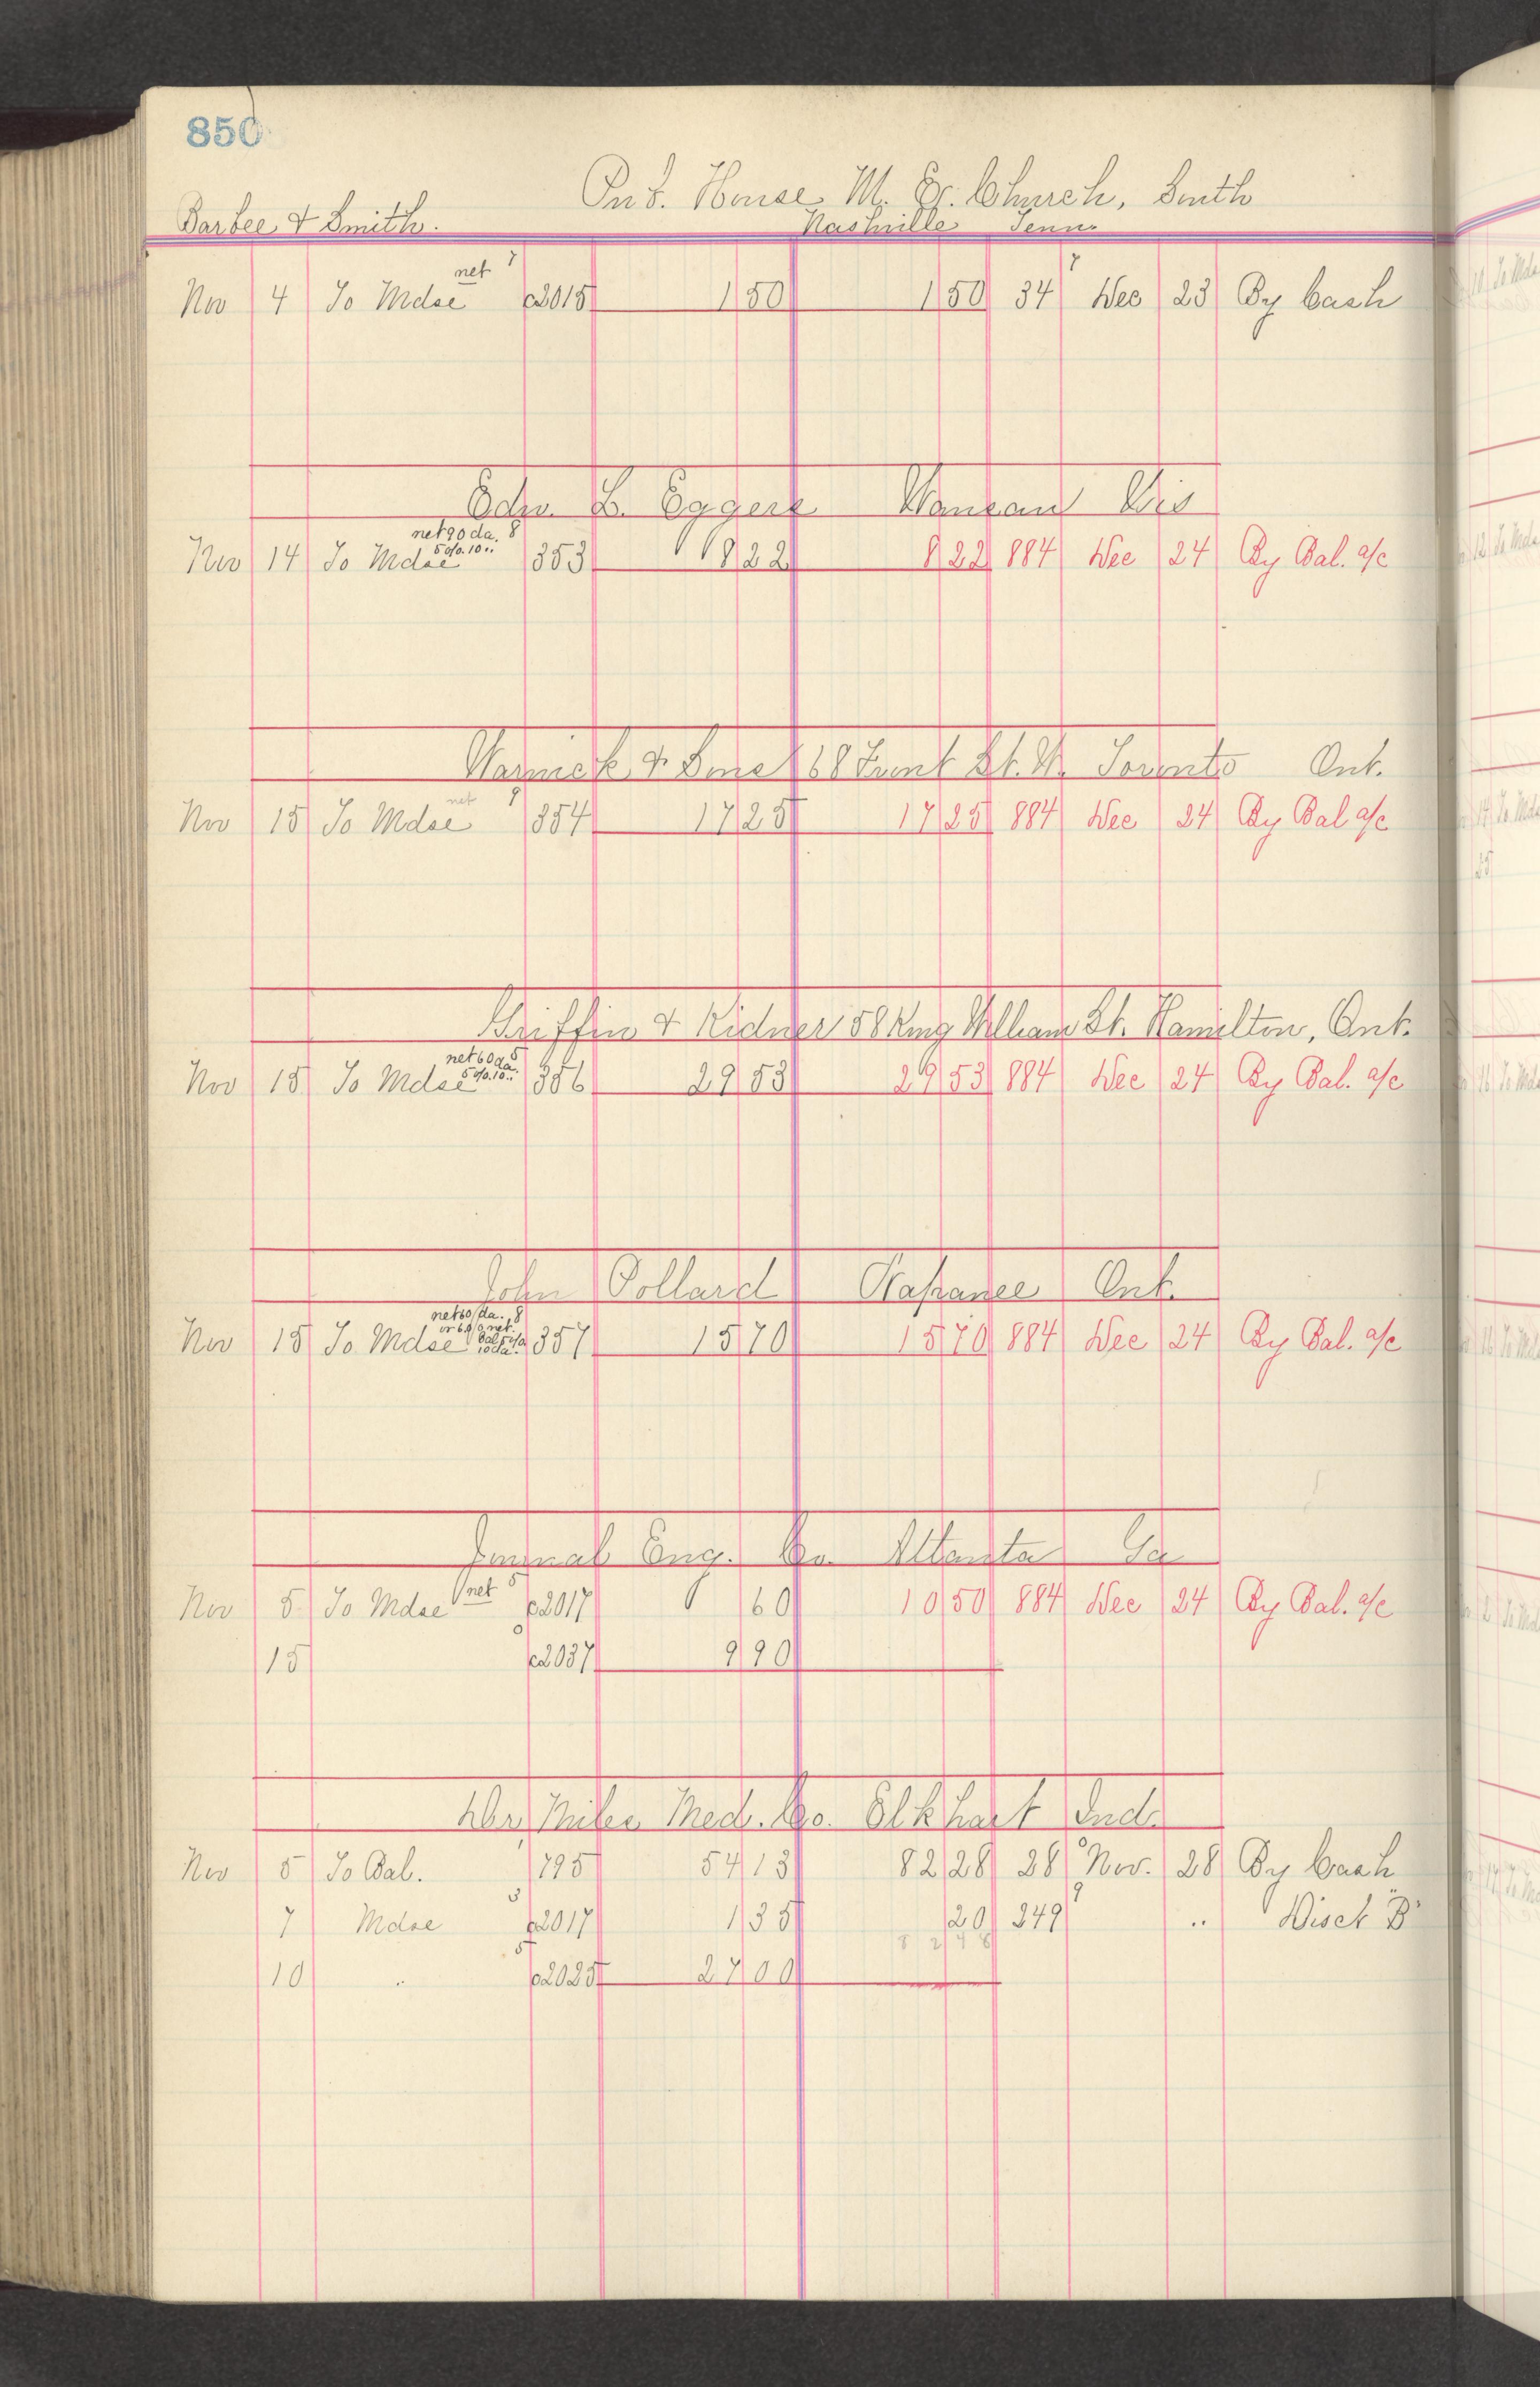 850
Pub. House M. E. Church, South
Barbee & Smith. Nashville Tenn.
net 7
Nov 4 To Mdse c2015 1 50 1 50 34 7 Dec 23 By Cash
Edw. L. Eggers Wausau Wis
net 90 da. 8
5% 10 ..
Nov 14 To Mdse 353 8 22 8 22 884 Dec 24 By Bal. a/c
Warwick & Sons 68 Front St. W. Toronto Ont.
net 9
Nov 15 To Mdse 354 17 25 17 25 884 Dec 24 By Bal a/c
Griffin & Kidner 58 King William St. Hamilton, Ont.
net 60 da. 5
5% 10 ..
Nov 15 To Mdse 356 29 53 29 53 884 Dec 24 By Bal. a/c
John Pollard Napanee Ont.
net 60 da. 8
or 6.00 net.
Bal 5%
10 da.
Nov 15 To Mdse 357 15 70 15 70 884 Dec 24 By Bal. a/c
Journal Eng. Co. Atlanta Ga
net 5
Nov 5 To Mdse c2017 60 10 50 884 Dec 24 By Bal. a/c
15 c2037 9 90
Dr Miles Med. Co. Elkhart Ind.
Nov 5 To Bal. 795 54 13 82 28 28 Nov. 28 By Cash
7 Mdse 3 c2017 1 35 20 249 9 .. Disct "B"
82 48
10 .. 5 c2025 27 00